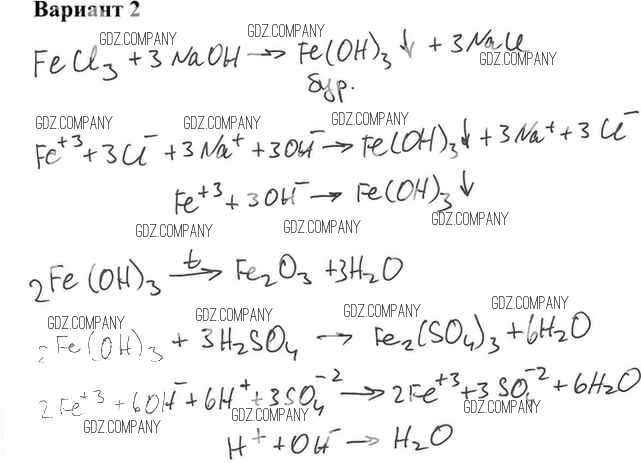 Вариант 2
GDZ.COMPANY
FeCl₃ + 3NaOH → Fe(OH)₃↓ + 3NaCl
GDZ.COMPANY GDZ.COMPANY
бур.
GDZ.COMPANY GDZ.COMPANY GDZ.COMPANY
Fe⁺³ + 3Cl⁻ + 3Na⁺ + 3OH⁻ → Fe(OH)₃↓ + 3Na⁺ + 3Cl⁻
Fe⁺³ + 3OH⁻ → Fe(OH)₃↓
GDZ.COMPANY GDZ.COMPANY GDZ.COMPANY
2Fe(OH)₃ t→ Fe₂O₃ + 3H₂O
GDZ.COMPANY GDZ.COMPANY GDZ.COMPANY GDZ.COMPANY
2Fe(OH)₃ + 3H₂SO₄ → Fe₂(SO₄)₃ + 6H₂O
2Fe⁺³ + 6OH⁻ + 6H⁺ + 3SO₄⁻² → 2Fe⁺³ + 3SO₄⁻² + 6H₂O
GDZ.COMPANY GDZ.COMPANY GDZ.COMPANY
H⁺ + OH⁻ → H₂O